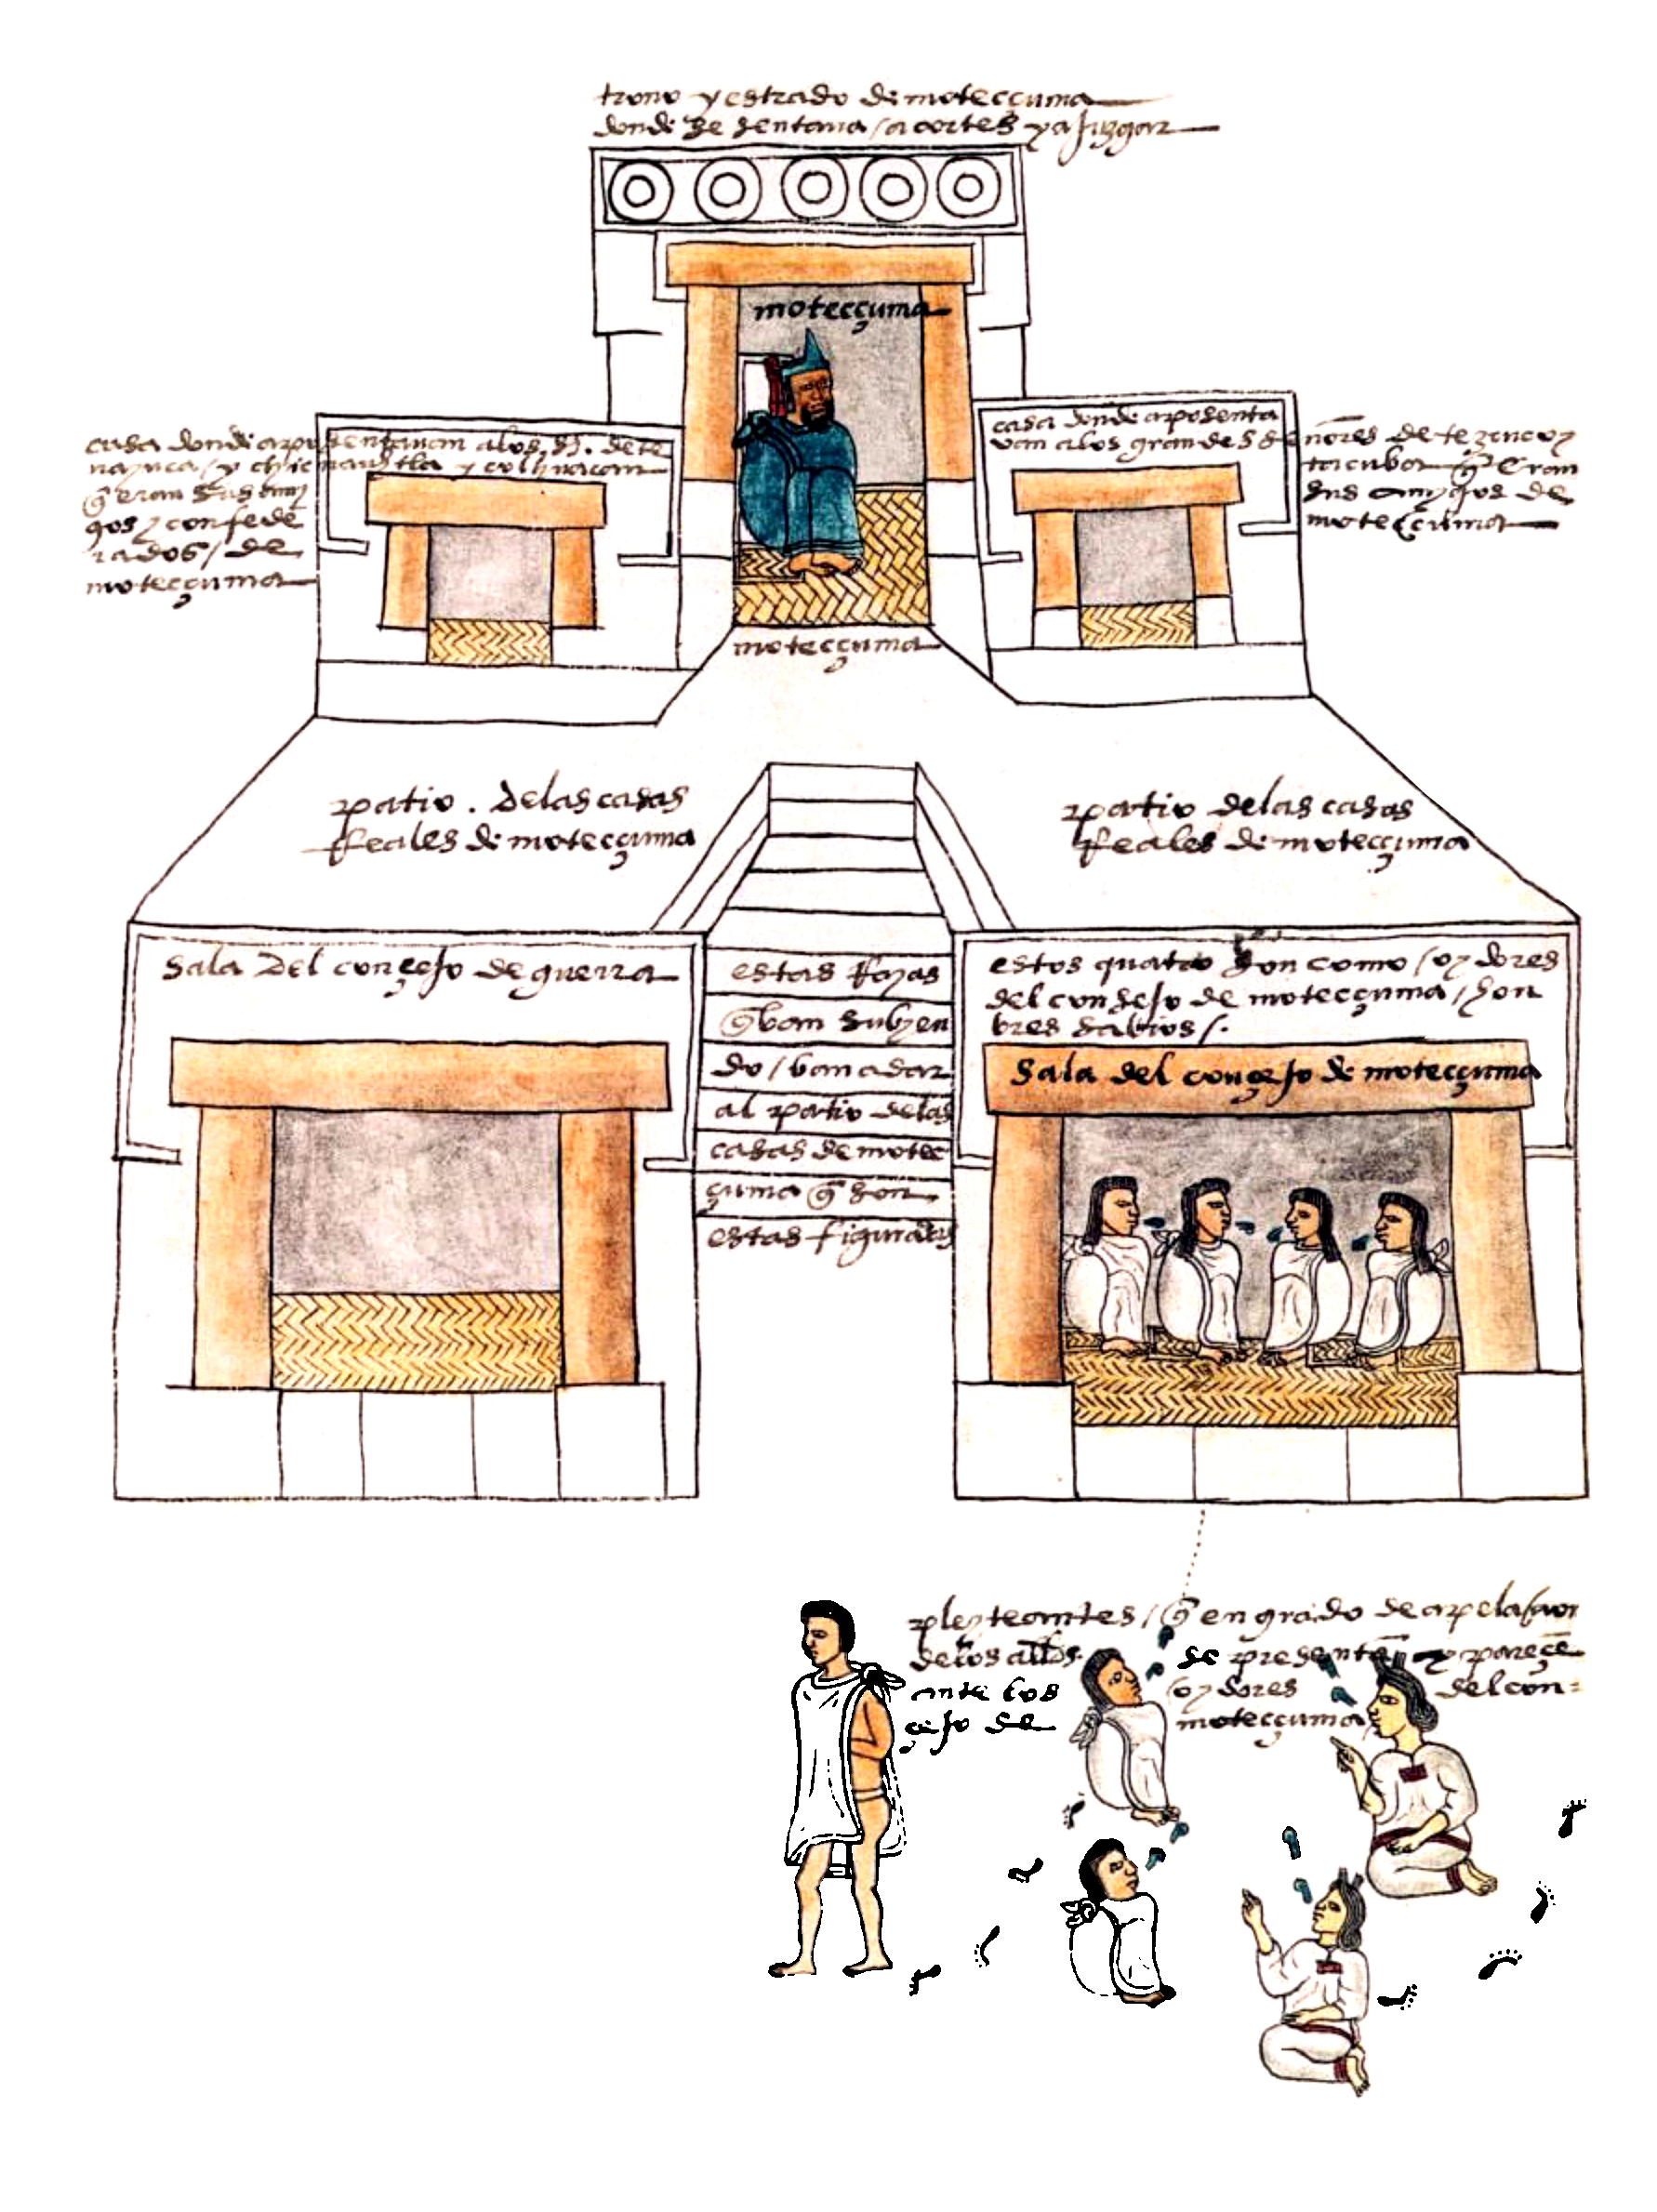 trono y estrado de motecçuma
donde se sentava / a cortes y a juzgar
motecçuma
casa donde aposentavan a los s.s. de te
nayuca / y chicnauhtla y colhuacan
q̃ eran sus ami
gos y confede
rados / de
motecçuma
casa donde aposenta
van a los grandes señores de tezcuco y
tacuba q̃ eran
sus amygos de
motecçuma
motecçuma
patio . de las casas
Reales de motecçuma
patio de las casas
Reales de motecçuma
sala del conçejo de guerra
estas Rayas
q̃ van subyen
do / van a dar
al patio de las
casas de motec
çuma q̃ son
estas figuradas
estos quatro son como / oydores
del consejo de motecçuma / hon
bres sabios /.
sala del conçejo de motecçuma
pleyteantes / q̃ en grado de apelaçion
de los allds. se presentã y pareçẽ
ante los oydores del con=
çejo de motecçuma